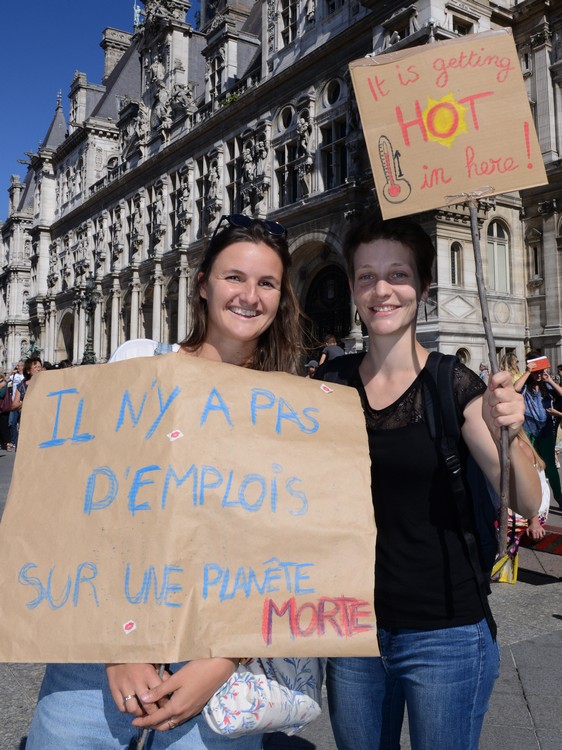 It is getting
HOT
in here!
IL N'Y A PAS
D'EMPLOIS
SUR UNE PLANÈTE
MORTE